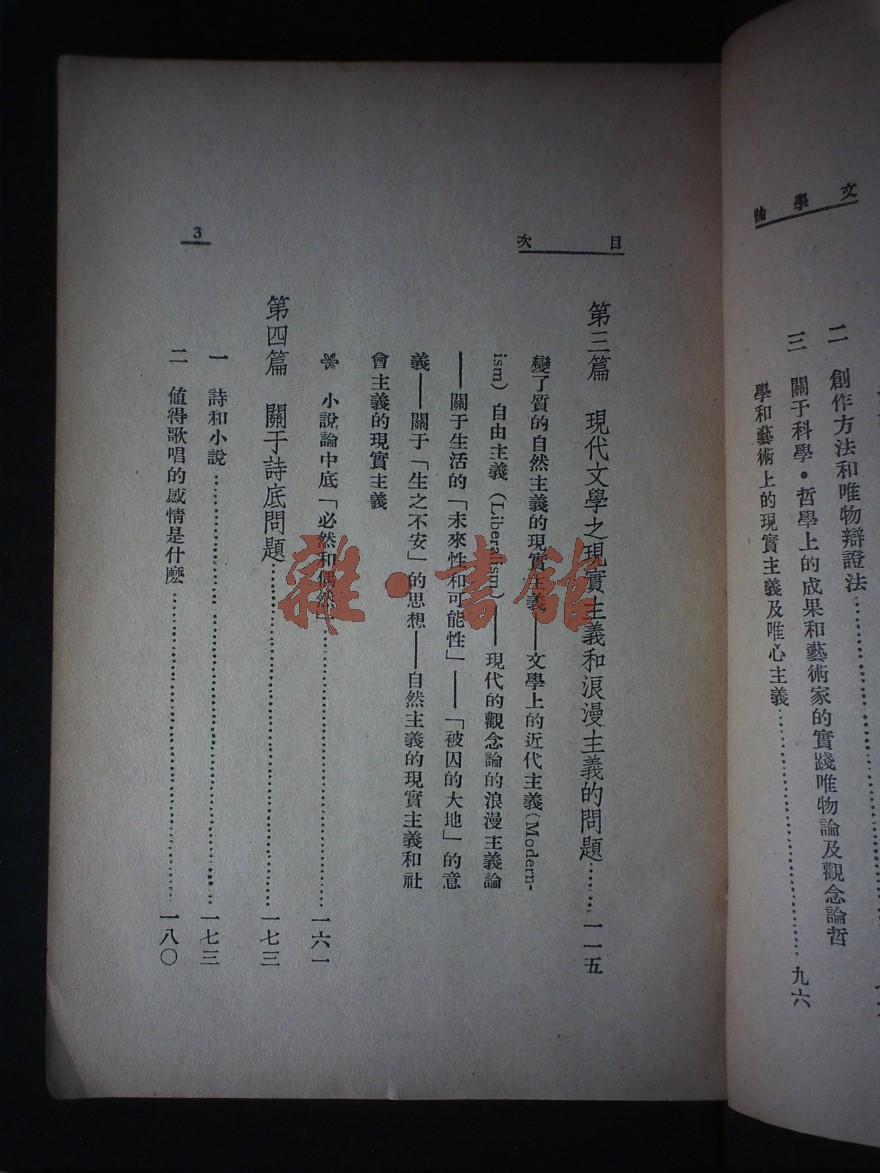 文學論
二 創作方法和唯物辯證法
三 關于科學•哲學上的成果和藝術家的實踐唯物論及觀念論哲
學和藝術上的現實主義及唯心主義……九六
目次
第三篇 現代文學之現實主義和浪漫主義的問題……一一五
變了質的自然主義的現實主義——文學上的近代主義(Modern-
ism)自由主義(Liberalism)——現代的觀念論的浪漫主義論
——關于生活的「未來性和可能性」——「被囚的大地」的意
義——關于「生之不安」的思想——自然主義的現實主義和社
會主義的現實主義
❋ 小說論中底「必然和偶然」……一六一
第四篇 關于詩底問題……一七三
一 詩和小說……一七三
二 値得歌唱的感情是什麽……一八〇
3
雜•書館